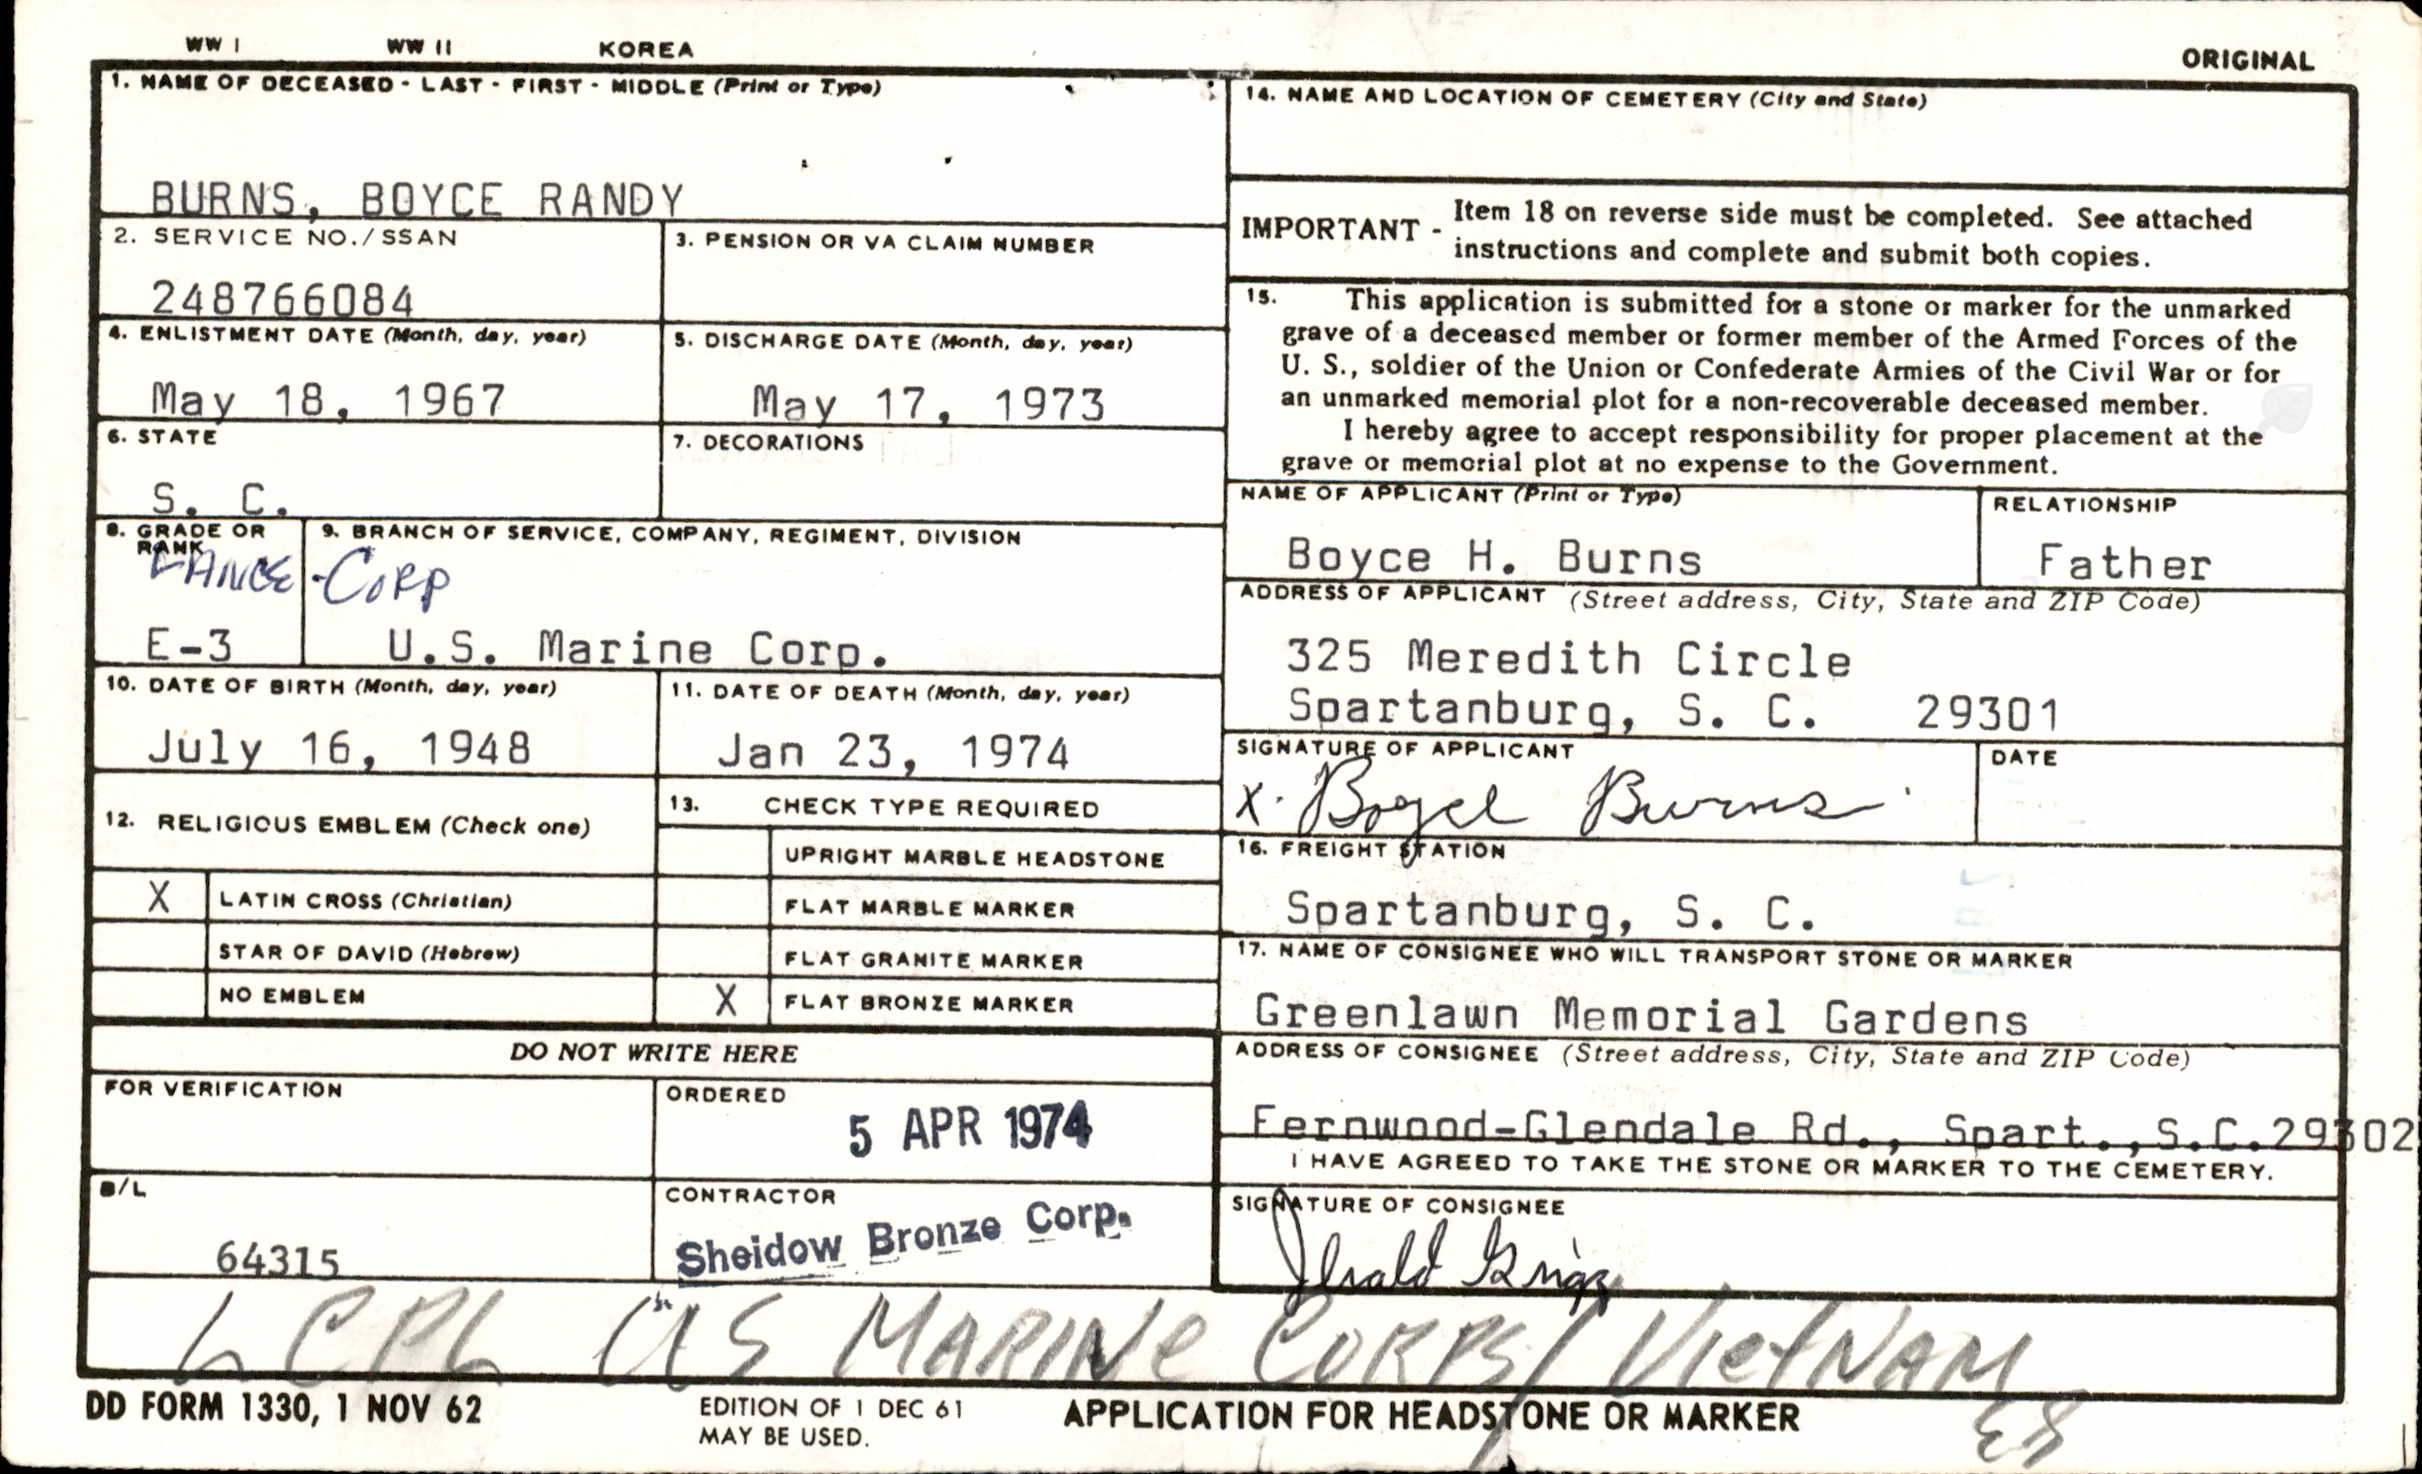 WW I WW II KOREA
ORIGINAL
1. NAME OF DECEASED - LAST - FIRST - MIDDLE (Print or Type)
BURNS, BOYCE RANDY
2. SERVICE NO./SSAN
248766084
3. PENSION OR VA CLAIM NUMBER
4. ENLISTMENT DATE (Month, day, year)
May 18, 1967
5. DISCHARGE DATE (Month, day, year)
May 17, 1973
6. STATE
S. C.
7. DECORATIONS
8. GRADE OR
RANK
LANCE
E-3
9. BRANCH OF SERVICE, COMPANY, REGIMENT, DIVISION
-CORP
U.S. Marine Corp.
10. DATE OF BIRTH (Month, day, year)
July 16, 1948
11. DATE OF DEATH (Month, day, year)
Jan 23, 1974
12. RELIGIOUS EMBLEM (Check one)
X LATIN CROSS (Christian)
STAR OF DAVID (Hebrew)
NO EMBLEM
13. CHECK TYPE REQUIRED
UPRIGHT MARBLE HEADSTONE
FLAT MARBLE MARKER
FLAT GRANITE MARKER
X FLAT BRONZE MARKER
DO NOT WRITE HERE
FOR VERIFICATION
ORDERED
5 APR 1974
B/L
64315
CONTRACTOR
Sheidow Bronze Corp.
14. NAME AND LOCATION OF CEMETERY (City and State)
IMPORTANT - Item 18 on reverse side must be completed. See attached
instructions and complete and submit both copies.
15. This application is submitted for a stone or marker for the unmarked
grave of a deceased member or former member of the Armed Forces of the
U. S., soldier of the Union or Confederate Armies of the Civil War or for
an unmarked memorial plot for a non-recoverable deceased member.
I hereby agree to accept responsibility for proper placement at the
grave or memorial plot at no expense to the Government.
NAME OF APPLICANT (Print or Type)
Boyce H. Burns
RELATIONSHIP
Father
ADDRESS OF APPLICANT (Street address, City, State and ZIP Code)
325 Meredith Circle
Spartanburg, S. C. 29301
SIGNATURE OF APPLICANT
X. Boyce Burns
DATE
16. FREIGHT STATION
Spartanburg, S. C.
17. NAME OF CONSIGNEE WHO WILL TRANSPORT STONE OR MARKER
Greenlawn Memorial Gardens
ADDRESS OF CONSIGNEE (Street address, City, State and ZIP Code)
Fernwood-Glendale Rd., Spart., S.C. 29302
I HAVE AGREED TO TAKE THE STONE OR MARKER TO THE CEMETERY.
SIGNATURE OF CONSIGNEE
L CPL US MARINE CORPS/ VIETNAM
DD FORM 1330, 1 NOV 62
EDITION OF 1 DEC 61
MAY BE USED.
APPLICATION FOR HEADSTONE OR MARKER